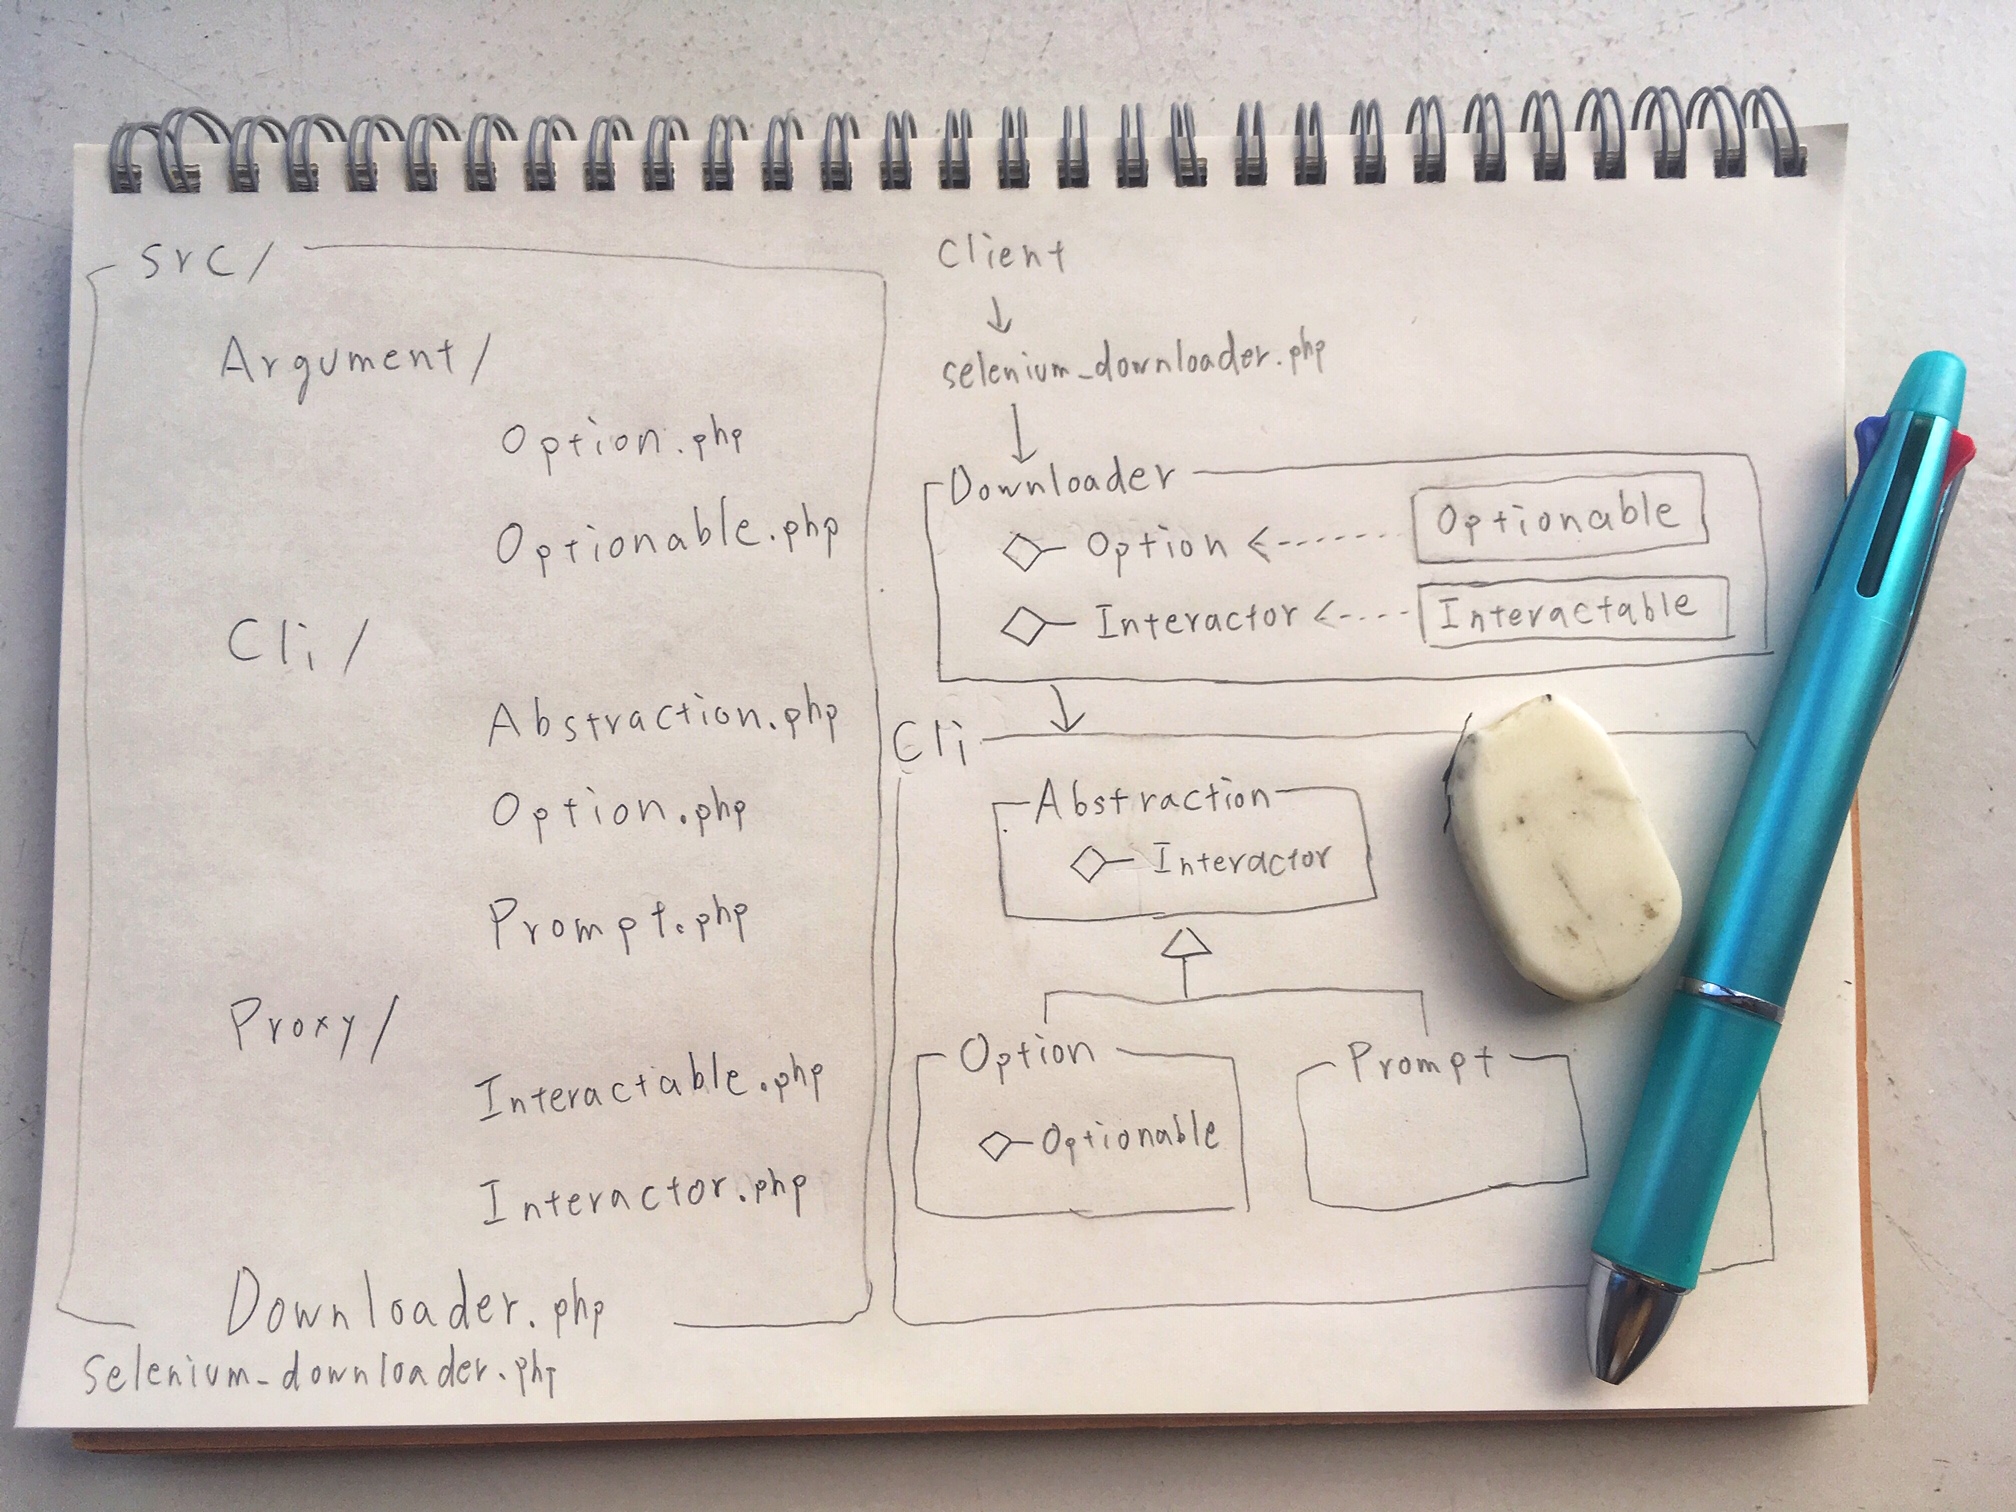 src/
Argument/
Option.php
Optionable.php
Cli/
Abstraction.php
Option.php
Prompt.php
Proxy/
Interactable.php
Interactor.php
Downloader.php
selenium_downloader.php
Client
selenium_downloader.php
Downloader
Option
Optionable
Interactor
Interactable
Cli
Abstraction
Interactor
Option
Optionable
Prompt